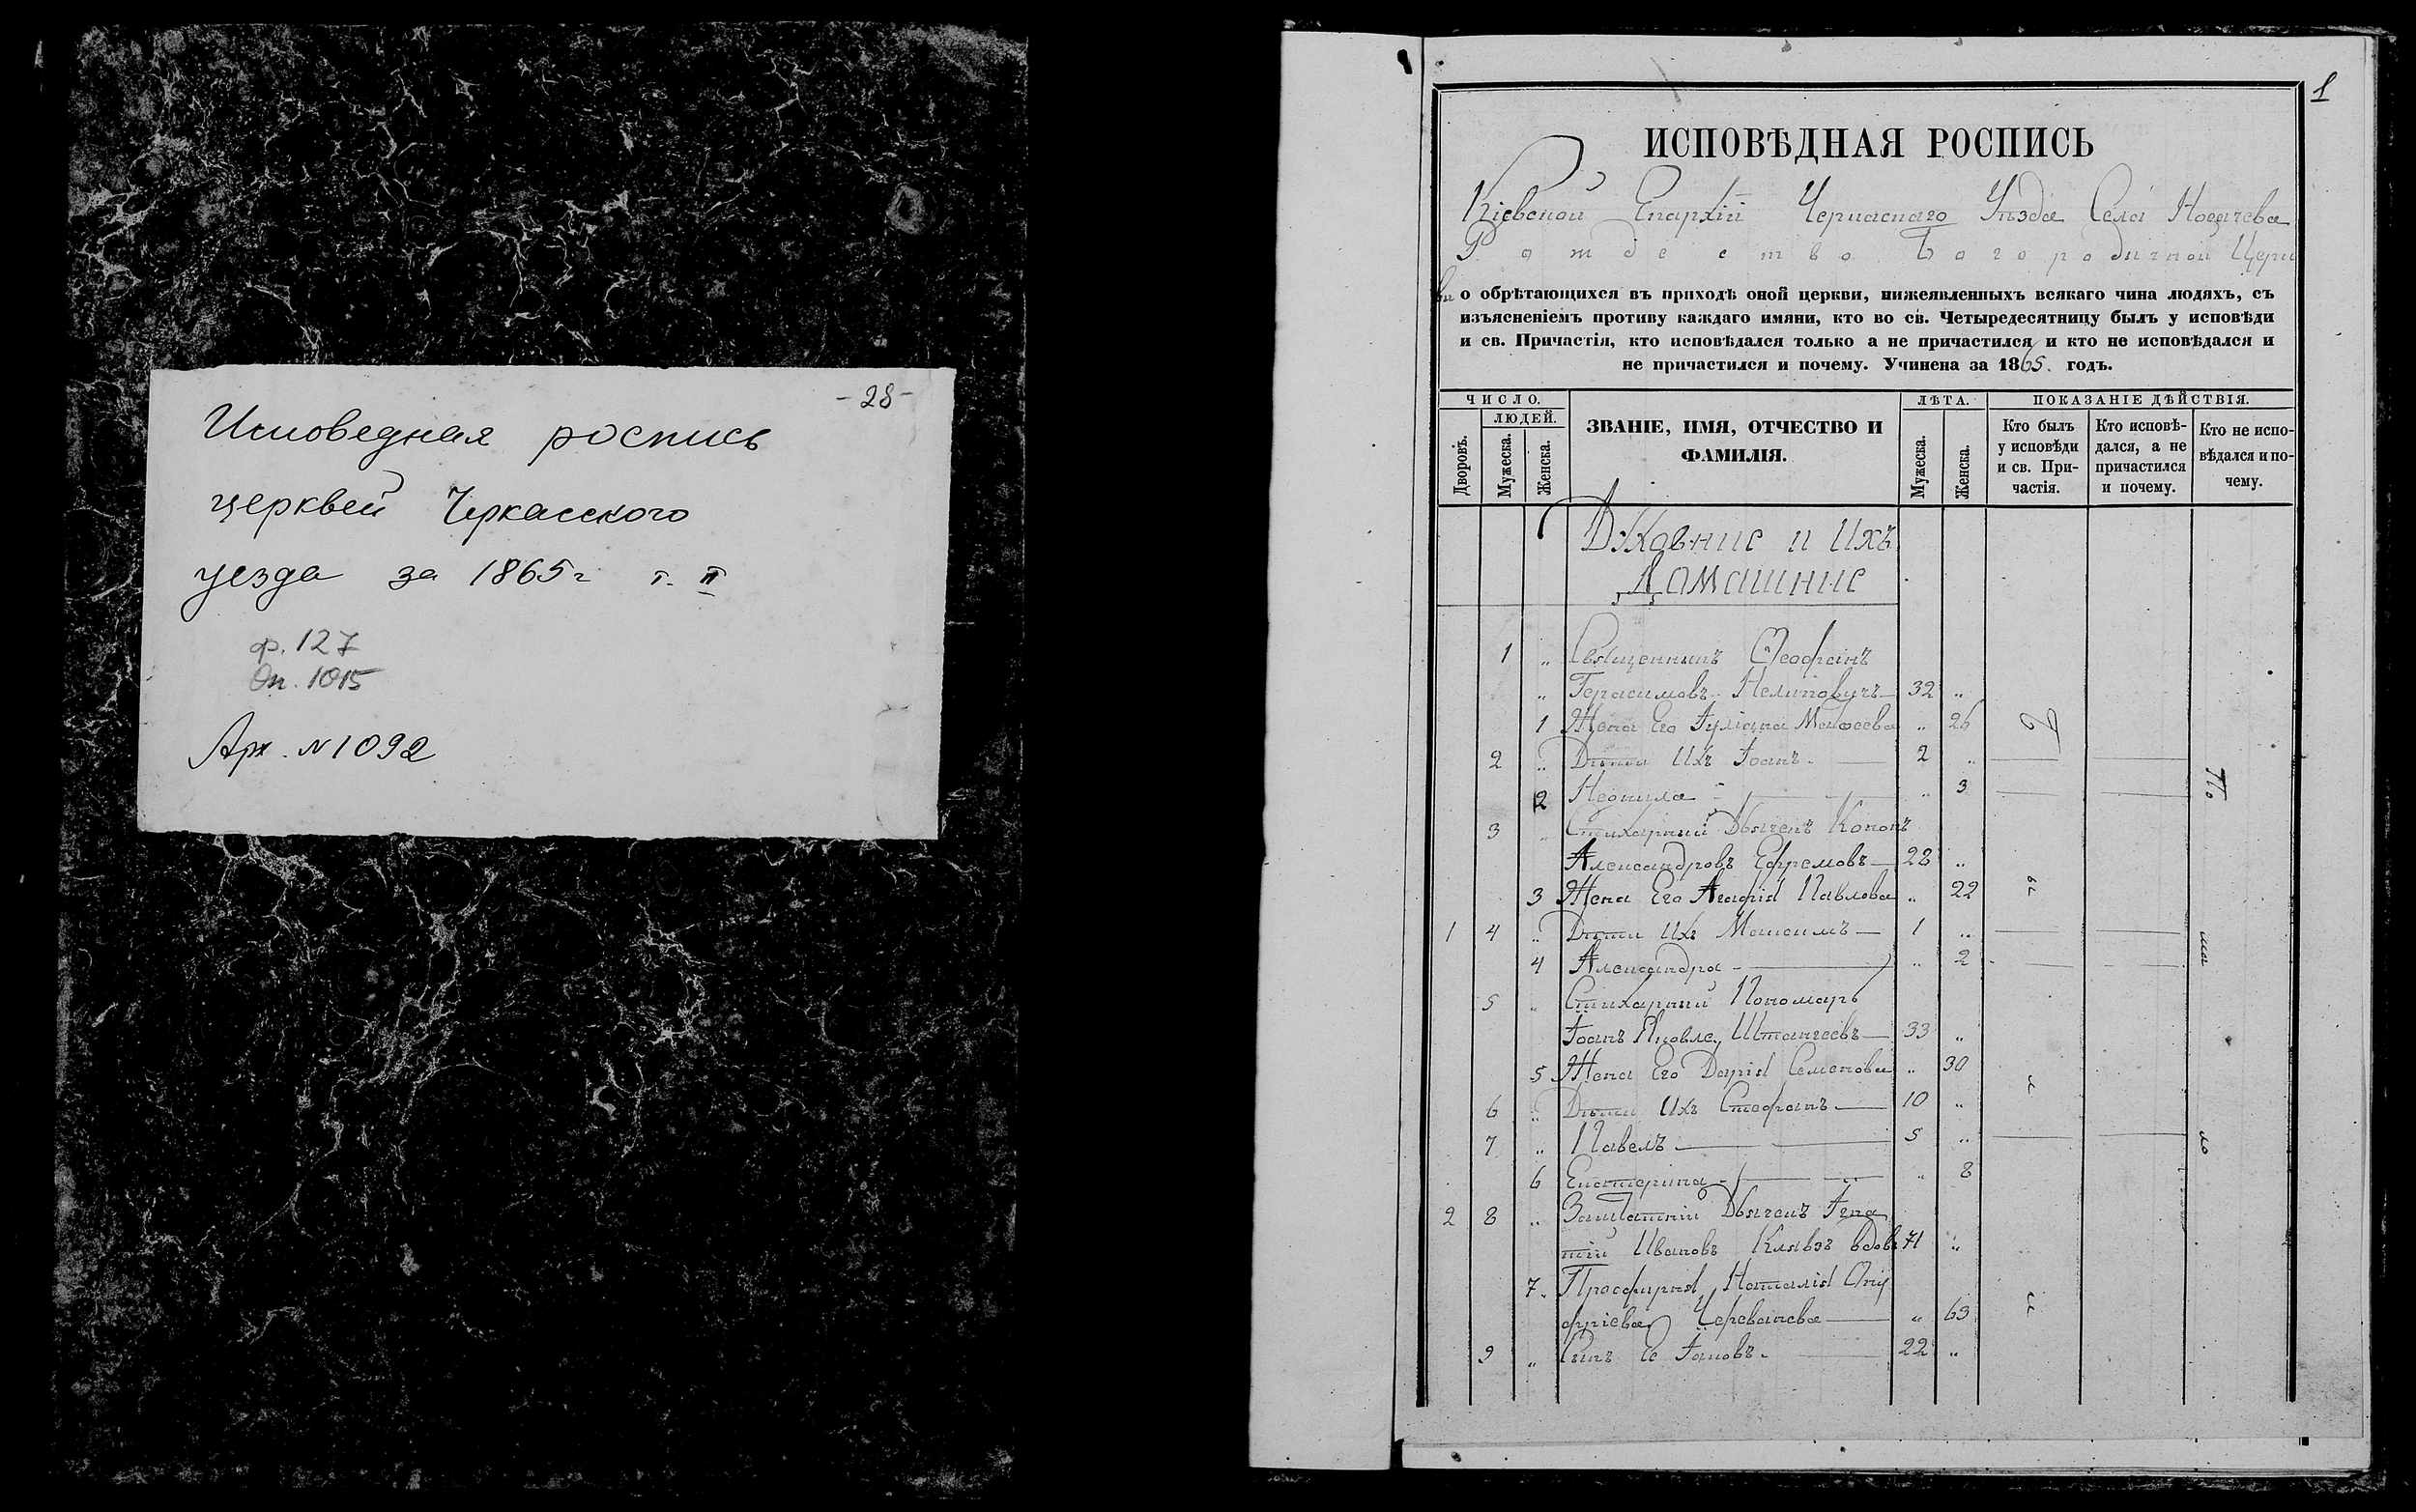 -28-
Исповедная роспись
церквей Черкасского
уезда за 1865г т. II
ф. 127
Оп. 1015
Арх. N 1092
1
ИСПОВѢДНАЯ РОСПИСЬ
Кіевской Епархіи Черкаскаго Уѣзда Села Носачева
Рождество Богородичной Церк
ви о обрѣтающихся въ приходѣ оной церкви, нижеявленныхъ всякаго чина людяхъ, съ
изъясненіемъ противу каждаго имяни, кто во св. Четыредесятницу былъ у исповѣди
и св. Причастія, кто исповѣдался только а не причастился и кто не исповѣдался и
не причастился и почему. Учинена за 1865. годъ.
ЧИСЛО. ЛѢТА. ПОКАЗАНІЕ ДѢЙСТВІЯ.
Дворовъ. ЛЮДЕЙ. Мужеска. Женска.
ЗВАНІЕ, ИМЯ, ОТЧЕСТВО И
ФАМИЛІЯ.
Мужеска. Женска.
Кто былъ
у исповѣди
и св. При-
частія.
Кто исповѣ-
дался, а не
причастился
и почему.
Кто не испо-
вѣдался и по-
чему.
Духовние и ихъ
Домашние
1 „ Священникъ Феофанъ
„ Герасимовъ 32 „
1 Жена Его Іуліана „ 26
2 „ Дѣти Ихъ Іоанъ 2 „
2 Неонила „ 3
3 „ Стихарний Дьячекъ Кононъ
Александровъ Ефремовъ 28 „
3 Жена Его Агафія Павлова „ 22
1 4 „ Дѣти Ихъ Максимъ 1 „
4 Александра „ 2
5 „ Стихарний Пономарь
Іоанъ Яковлев Штангеевъ 33 „
5 Жена Его Дарія Семенова „ 30
6 „ Дѣти Ихъ Стефанъ 10 „
7 „ Павелъ 5 „
6 Екатерина „ 8
2 8 „ Заштатній Дьячекъ Игна
тій Ивановъ вдовъ 71 „
7 Просфирня Наталія Ону
фріева Череванева „ 63
9 „ Сынъ Ее Іаковъ 22 „